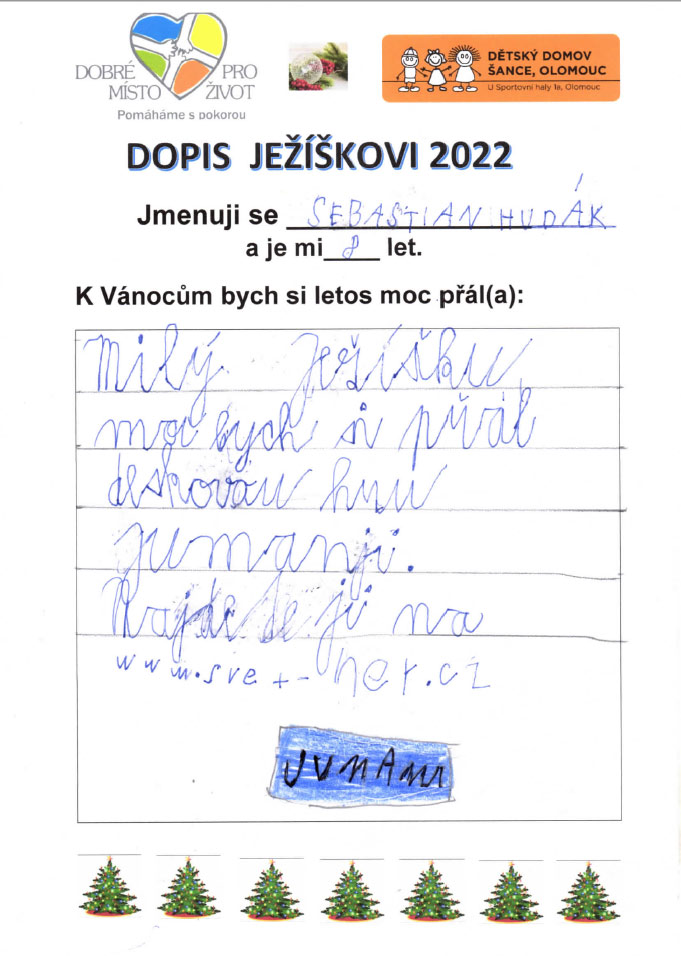 DOBRÉ PRO
MÍSTO ŽIVOT
Pomáháme s pokorou
DĚTSKÝ DOMOV
ŠANCE, OLOMOUC
U Sportovní haly 1a, Olomouc
DOPIS JEŽÍŠKOVI 2022
Jmenuji se SEBASTIAN HUDÁK
a je mi 8 let.
K Vánocům bych si letos moc přál(a):
Milý Ježíšku
bych si přál
deskovou hru
jumanji.
Najdete ji na
www.svet-her.cz